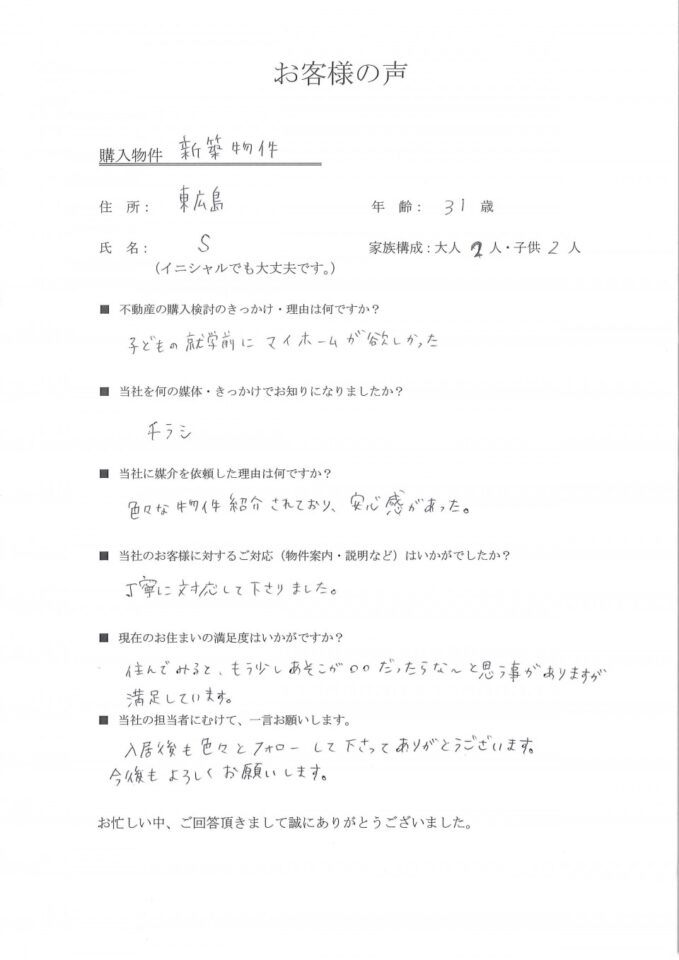 お客様の声
購入物件 新築物件
住 所： 東広島 年 齢： 31 歳
氏 名： S 家族構成：大人 2 人・子供 2 人
（イニシャルでも大丈夫です。）
■ 不動産の購入検討のきっかけ・理由は何ですか？
子どもの就学前に マイホームが欲しかった
■ 当社を何の媒体・きっかけでお知りになりましたか？
チラシ
■ 当社に媒介を依頼した理由は何ですか？
色々な物件紹介されており、安心感があった。
■ 当社のお客様に対するご対応（物件案内・説明など）はいかがでしたか？
丁寧に対応して下さりました。
■ 現在のお住まいの満足度はいかがですか？
住んでみると、もう少しあそこが○○だったらな〜と思う事がありますが
満足しています。
■ 当社の担当者にむけて、一言お願いします。
入居後も色々とフォローして下さってありがとうございます。
今後もよろしくお願いします。
お忙しい中、ご回答頂きまして誠にありがとうございました。